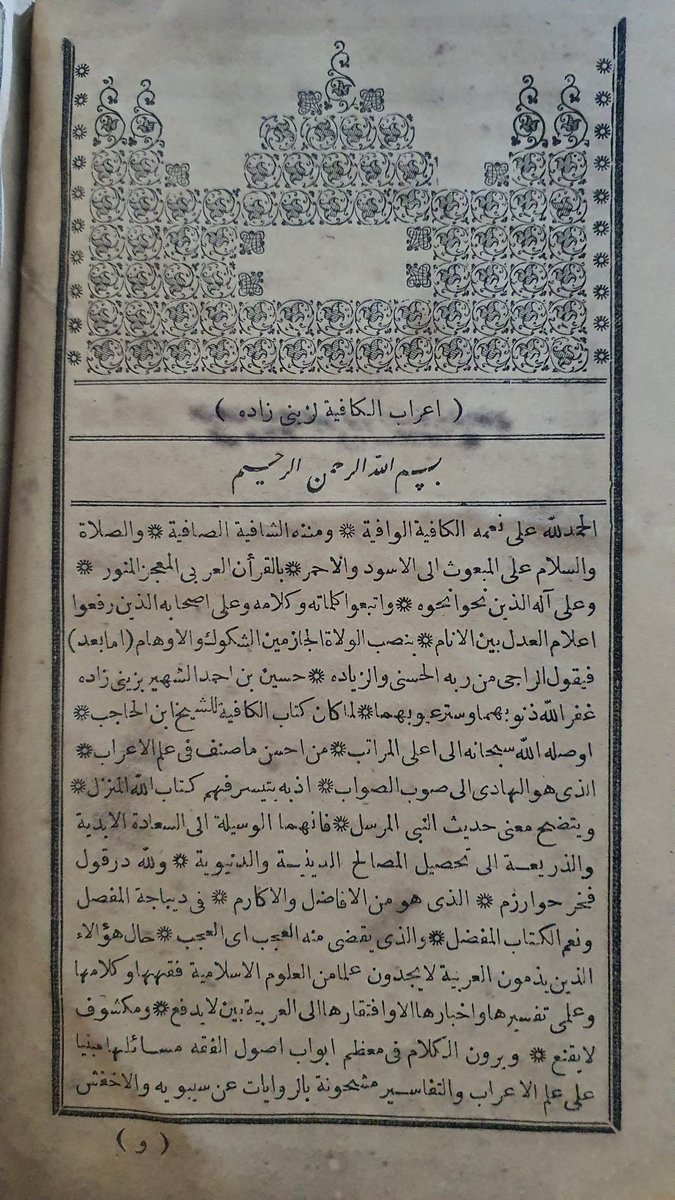 ( اعراب الكافية لزينى زاده )
بسم الله الرحمن الرحيم
الحمد لله على نعمه الكافية الوافية * ومننه الشافية الصافية * والصلاة
والسلام على المبعوث الى الاسود والاحمر * بالقرأن العربى المعجز المنور *
وعلى آله الذين نحوا نحوه * واتبعوا كلماته وكلامه وعلى اصحابه الذين رفعوا
اعلام العدل بين الانام * بنصب الولاة الجازمين الشكوك والاوهام (اما بعد)
فيقول الراجى من ربه الحسنى والزياده * حسين بن احمد الشهير بزينى زاده
غفر الله ذنوبهما وستر عيوبهما * لما كان كتاب الكافية للشيخ ابن الحاجب *
اوصله الله سبحانه الى اعلى المراتب * من احسن ما صنف فى علم الاعراب *
الذى هو الهادى الى صوب الصواب * اذ به يتيسر فهم كتاب الله المنزل *
ويتضح معنى حديث النبى المرسل * فانهما الوسيلة الى السعادة الابدية
والذريعة الى تحصيل المصالح الدينية والدنيوية * ولله در قول
فخر حوارزم * الذى هو من الافاضل والاكارم * فى ديباجة المفصل
ونعم الكتاب المفضل * والذى يقضى منه العجب اى العجب * حال هؤالاء
الذين يذمون العربية لا يجدون علما من العلوم الاسلامية فقهها وكلامها
وعلمى تفسيرها واخبارها الا وافتقارها الى العربية بين لا يدفع * ومكشوف
لا يقنع * ويرون الكلام فى معظم ابواب اصول الفقه مسائلها مبنيا
على علم الاعراب والتفاسير مشحونة بالروايات عن سيبويه والاخفش
( و )